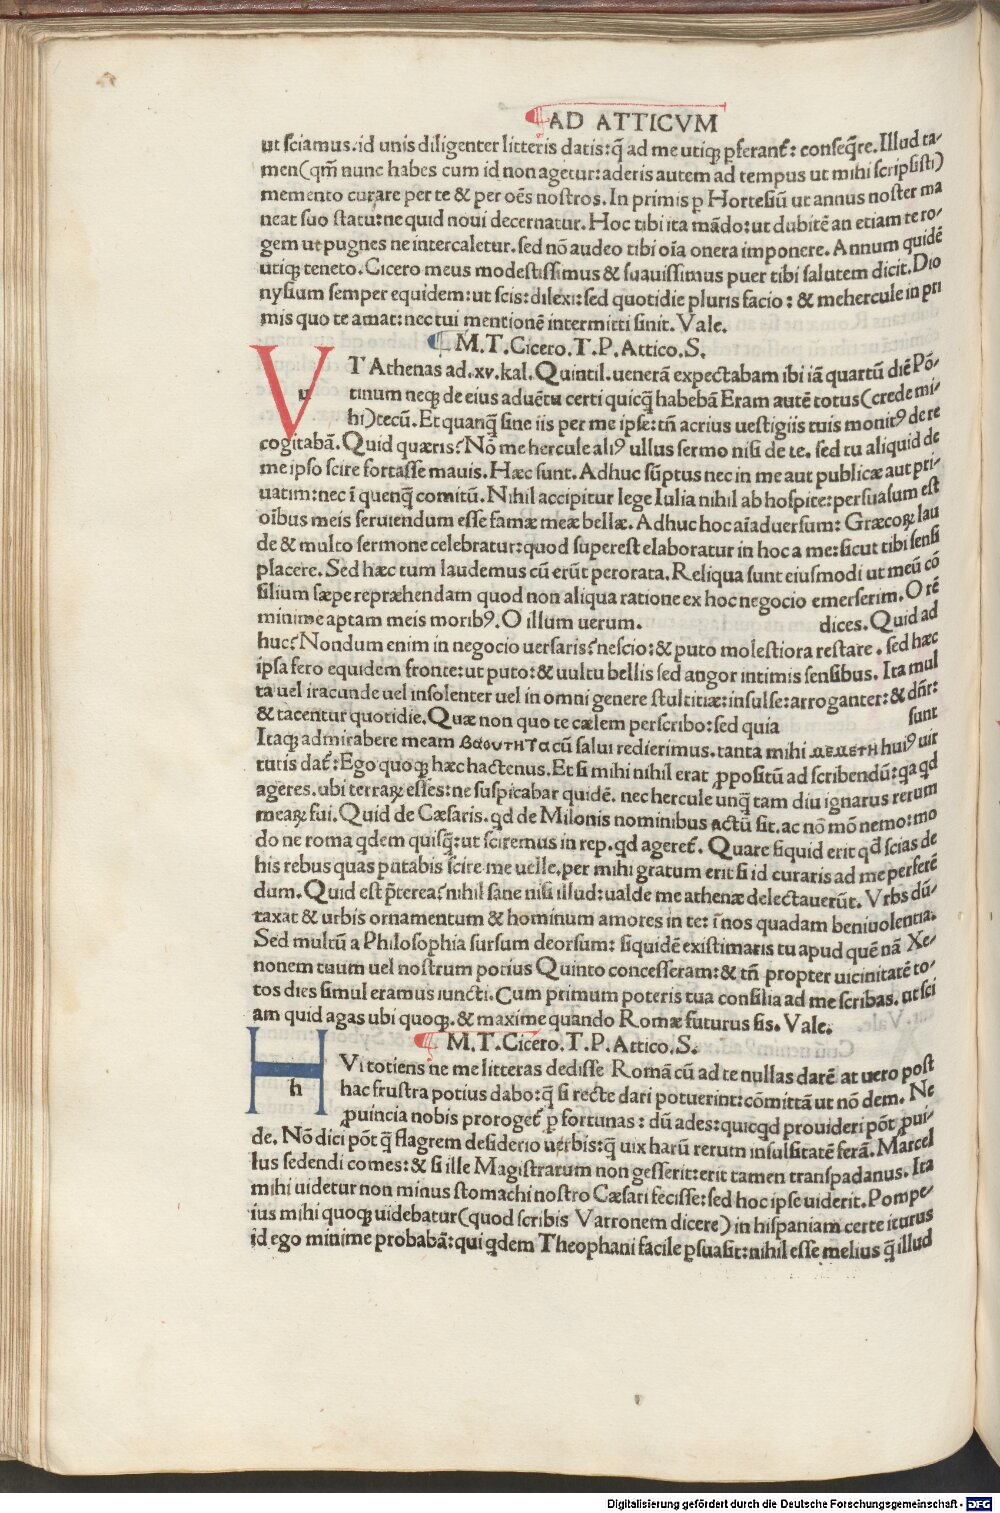 AD ATTICVM
ut sciamus.id unis diligenter litteris datis:q̃ ad me utiqꝫ ꝑferant̃: conseq̃re.Illud ta-
men(qm̃ nunc habes cum id non agetur:aderis autem ad tempus ut mihi scripsisti)
memento curare per te & per oēs nostros.In primis ꝑ Hortesiũ ut annus noster ma
neat suo statu:ne quid noui decernatur.Hoc tibi ita mãdo:ut dubitẽ an etiam te ro-
gem ut pugnes ne intercaletur.sed nõ audeo tibi oĩa onera imponere.Annum quidẽ
utiqꝫ teneto.Cicero meus modestissimus & suauissimus puer tibi salutem dicit.Dio
nysium semper equidem:ut scis:dilexi:sed quotidie pluris facio: & mehercule in pri
mis quo te amat:nec tui mentionẽ intermitti sinit.Vale.
M.T.Cicero.T.P.Attico.S.
V
u
T Athenas ad.xv.kal.Quintil.uenerã expectabam ibi iã quartũ diẽ Põ-
tinum neqꝫ de eius aduẽtu certi quicq̃ habebã Eram autẽ totus(crede mi-
hi)tecũ.Et quanq̃ sine iis per me ipse:tñ acrius uestigiis tuis monitꝰ de te
cogitabã.Quid quæris?Nõ me hercule aliꝰ ullus sermo nisi de te. sed tu aliquid de
me ipso scire fortasse mauis.Hæc sunt.Adhuc sũptus nec in me aut publicæ aut pri-
uatim:nec ĩ quenq̃ comitũ.Nihil accipitur lege Iulia nihil ab hospite:persuasum est
oĩbus meis seruiendum esse famæ meæ bellæ.Adhuc hoc aĩaduersum: Græcoꝝ lau
de & multo sermone celebratur:quod superest elaboratur in hoc a me:sicut tibi sensi
placere.Sed hæc tum laudemus cũ erũt perorata.Reliqua sunt eiusmodi ut meũ cõ
silium sæpe repræhendam quod non aliqua ratione ex hoc negocio emerserim.O rẽ
minime aptam meis moribꝰ.O illum uerum. dices.Quid ad
huc?Nondum enim in negocio uersaris?nescio:& puto molestiora restare.sed hæc
ipsa fero equidem fronte:ut puto:& uultu bellis sed angor intimis sensibus. Ita mul
ta uel iracunde uel insolenter uel in omni genere stultitiæ:insulse:arroganter:& dñr:
& tacentur quotidie.Quæ non quo te cælem perscribo:sed quia sunt
Itaqꝫ admirabere meam βαουτητα cũ salui redierimus.tanta mihi μεμετη huiꝰ uir
tutis dat̃:Ego quoqꝫ hæc hactenus.Et si mihi nihil erat ꝓpositũ ad scribendũ:qa qd
ageres.ubi terraꝝ esses:ne suspicabar quidẽ. nec hercule unq̃ tam diu ignarus rerum
mearꝝ fui.Quid de Cæsaris.qd de Milonis nominibus actũ sit.ac nõ mõ nemo:mo
do ne roma qdem quisq̃:ut sciremus in rep.qd ageret̃. Quare siquid erit qd̃ scias de
his rebus quas putabis scire me uelle.per mihi gratum erit si id curaris ad me perferẽ
dum.Quid est p̃terea?nihil sane nisi illud:ualde me athenæ delectauerũt.Vrbs dũ-
taxat & urbis ornamentum & hominum amores in te:ĩ nos quadam beniuolentia.
Sed multũ a Philosophia sursum deorsum: siquidẽ existimatis tu apud quẽ nã Xe-
nonem tuum uel nostrum potius Quinto concesseram:& tñ propter uicinitatẽ to-
tos dies simul eramus iuncti.Cum primum poteris tua consilia ad me scribas.ut sci
am quid agas ubi quoqꝫ.& maxime quando Romæ futurus sis.Vale.
M.T.Cicero.T.P.Attico.S.
H
h
Vi totiens ne me litteras dedisse Romã cũ ad te nullas darẽ at uero post
hac frustra potius dabo:q̃ si recte dari potuerint:cõmittã ut nõ dem.Ne
ꝓuincia nobis proroget̃ ꝑ fortunas: dũ ades:quicqd prouideri põt ꝓui-
de.Nõ dici põt q̃ flagrem desiderio urbis:q̃ uix harũ rerum insulsitatẽ ferã.Marcel
lus sedendi comes:& si ille Magistrarum non gesserit:erit tamen transpadanus.Ita
mihi uidetur non minus stomachi nostro Cæsari fecisse:sed hoc ipse uiderit.Pompe-
ius mihi quoqꝫ uidebatur(quod scribis Varronem dicere)in hispaniam certe iturus
id ego minime probabã:qui qdem Theophani facile ꝑsuasit:nihil esse melius q̃ illud
Digitalisierung gefördert durch die Deutsche Forschungsgemeinschaft - DFG